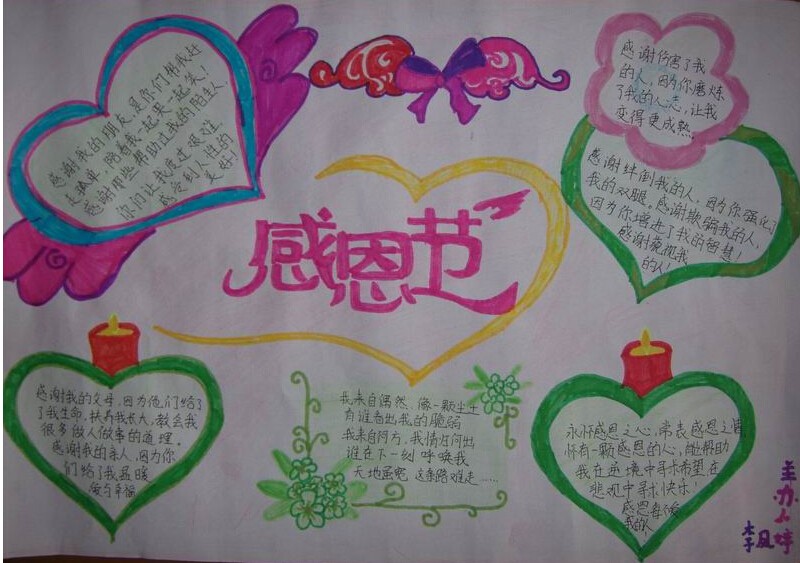 感谢我的朋友,是你们帮我赶
走孤单,陪着我一起哭一起笑!
感谢那些帮助过我的陌生人,
你们让我度过艰难,
感受到人性的
美好!
感谢伤害了我
的人,因为你磨炼
了我的心志,让我
变得更成熟。
感谢绊倒我的人,因为你强化了
我的双腿。感谢欺骗我的人,
因为你增进了我的智慧!
感谢藐视我
的人!
感恩节
感谢我的父母,因为他们给了
了我生命,扶养我长大,教会我
很多做人做事的道理。
感谢我的亲人,因为你
们给了我温暖
我来自偶然,像一颗尘土
有谁看出我的脆弱
我来自何方,我情归何出
谁在下一刻呼唤我
天地虽宽 这条路难走……
永怀感恩之心,常表感恩之情
怀有一颗感恩的心,能帮助
我在逆境中寻求希望,在
悲观中寻求快乐!
感恩每个爱
我的人
主办人
李凤婷